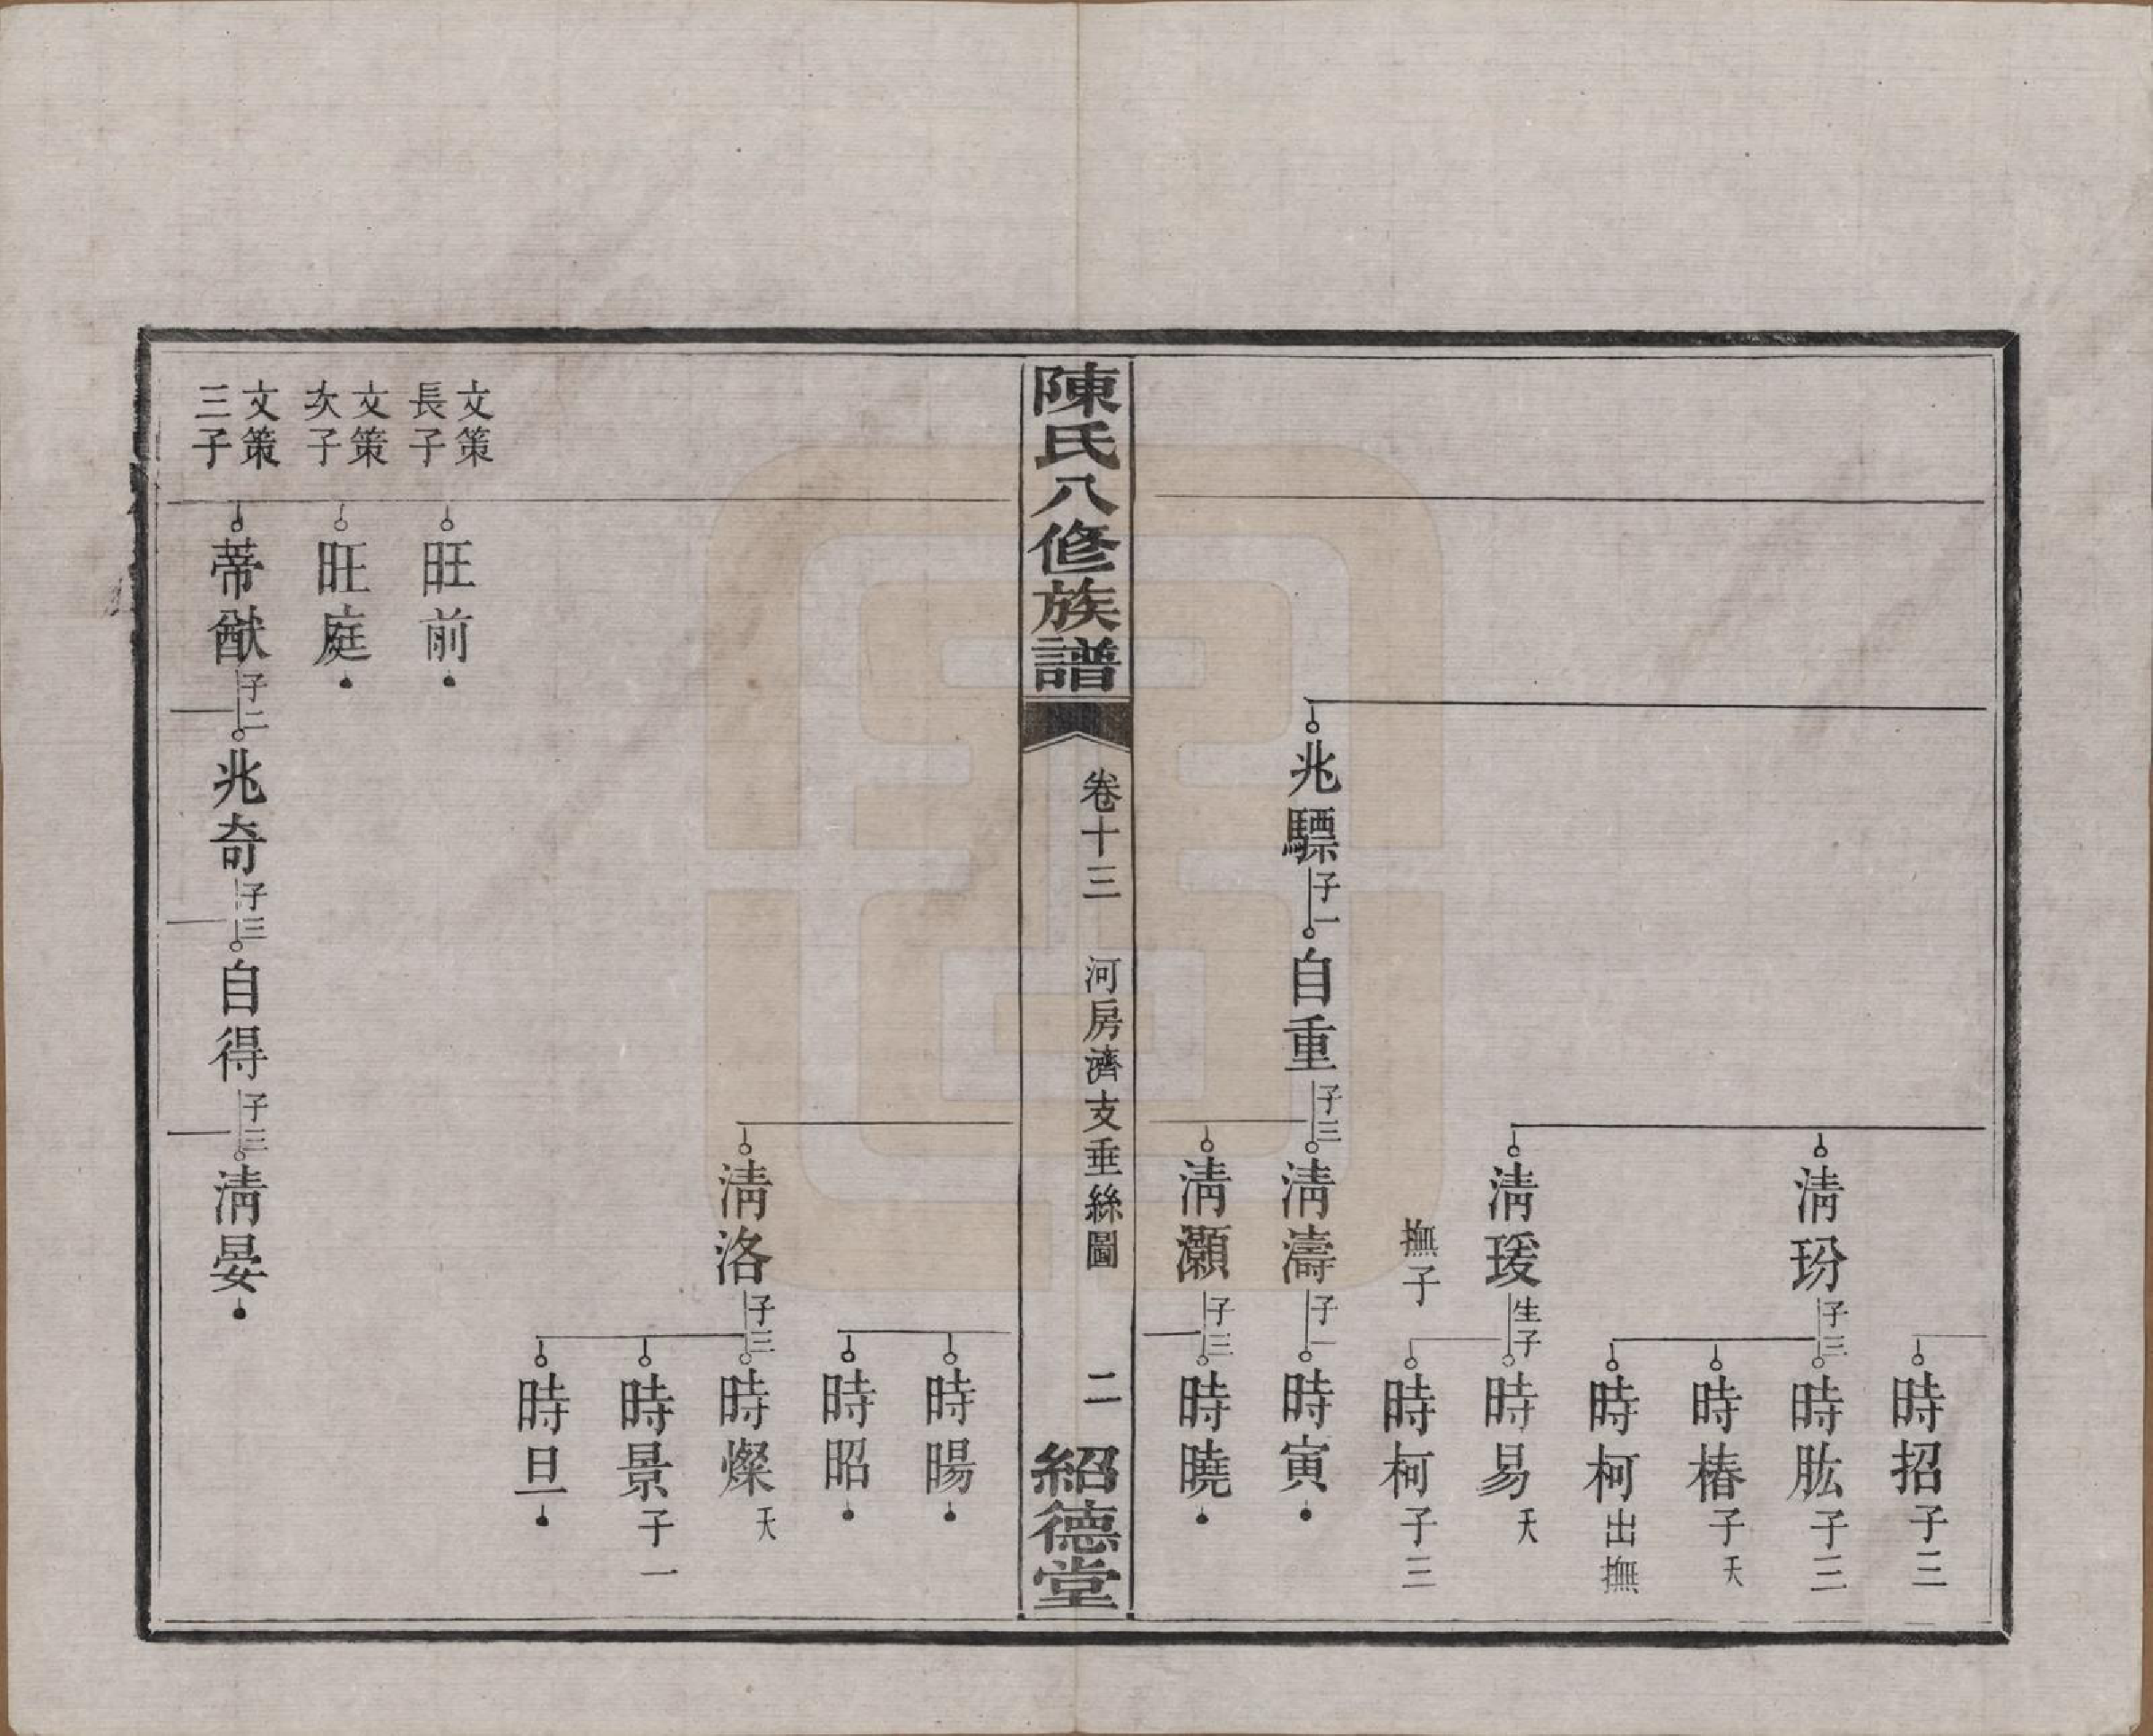 時招子三
清玢子三時肱子三
時椿子夭
時柯出撫
清瑗生子時易夭
撫子時柯子三
兆驃子一自重子三清濤子一時寅
清灝子三時曉
陳氏八修族譜
卷十三 河房濟支垂絲圖 二
紹德堂
時暘
時昭
清洛子三時燦夭
時景子一
時旦
文策長子
旺前
文策次子
旺庭
文策三子
蒂猷子二兆奇子三自得子三清晏